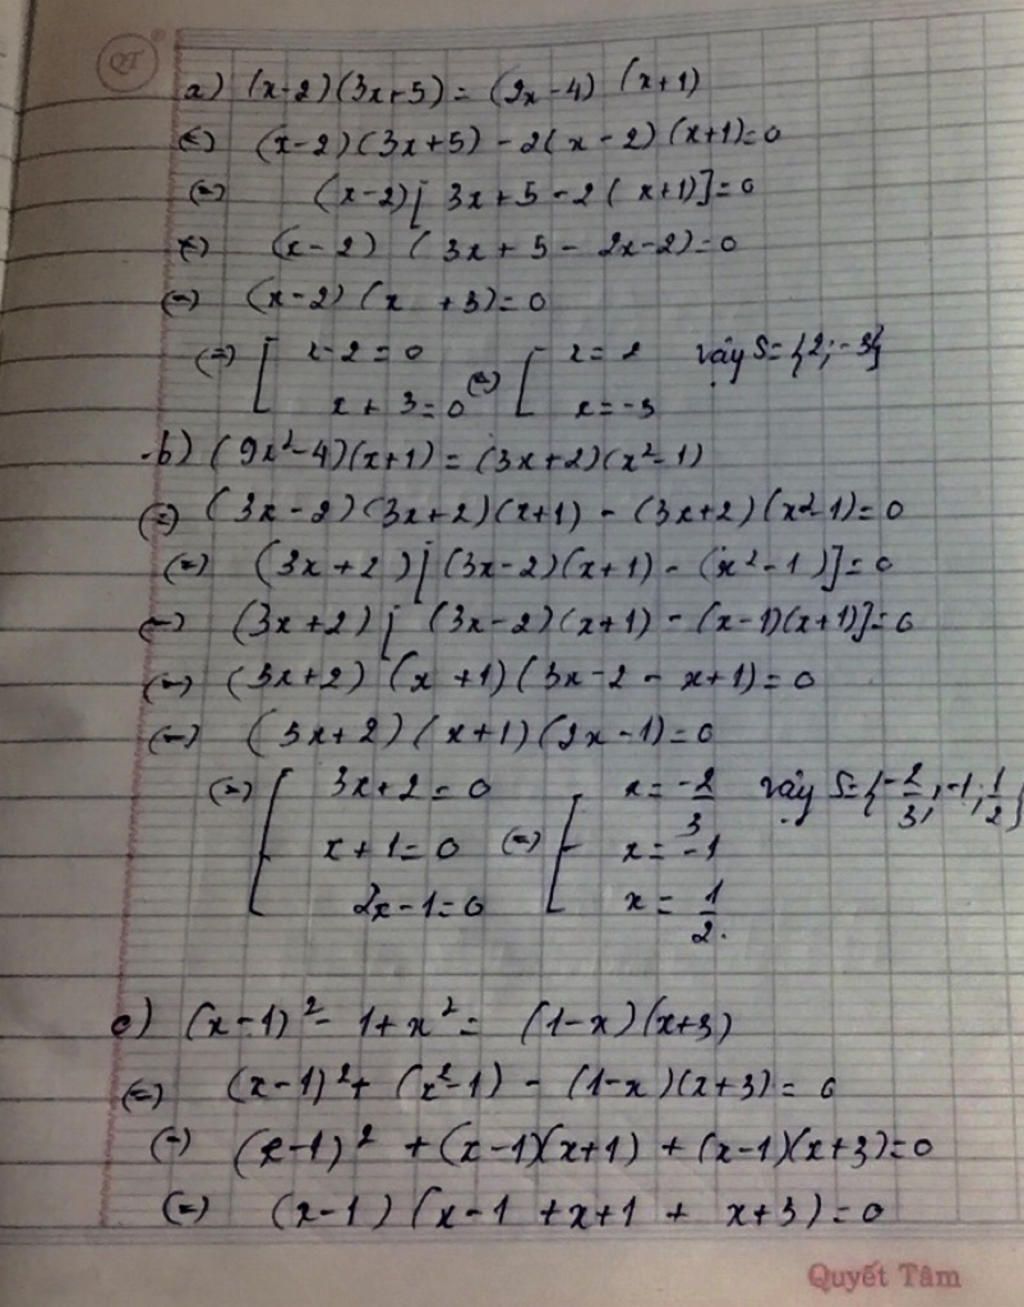 QT
a) (x-2)(3x+5) = (2x-4) (x+1)
(=) (x-2)(3x+5) - 2(x-2)(x+1)=0
(=) (x-2)[3x+5-2(x+1)]=0
(=) (x-2)(3x+5-2x-2)=0
(=) (x-2)(x +3)=0
(=) [ x-2=0 (=) [ x=2 vậy S={2;-3}
x+3=0 x=-3
b) (9x²-4)(x+1) = (3x+2)(x²-1)
(=) (3x-2)(3x+2)(x+1) - (3x+2)(x²-1)=0
(=) (3x+2)[(3x-2)(x+1) - (x²-1)]=0
(=) (3x+2)[(3x-2)(x+1) - (x-1)(x+1)]=0
(=) (3x+2)(x+1)(3x-2-x+1)=0
(=) (3x+2)(x+1)(2x-1)=0
(=) [ 3x+2=0 (=) [ x=-2/3 vậy S={-2/3;-1;1/2}
x+1=0 x=-1
2x-1=0 x=1/2.
c) (x-1)²-1+x² = (1-x)(x+3)
(=) (x-1)²+(x²-1)-(1-x)(x+3)=0
(=) (x-1)²+(x-1)(x+1)+(x-1)(x+3)=0
(=) (x-1)(x-1+x+1+x+3)=0
Quyết Tâm